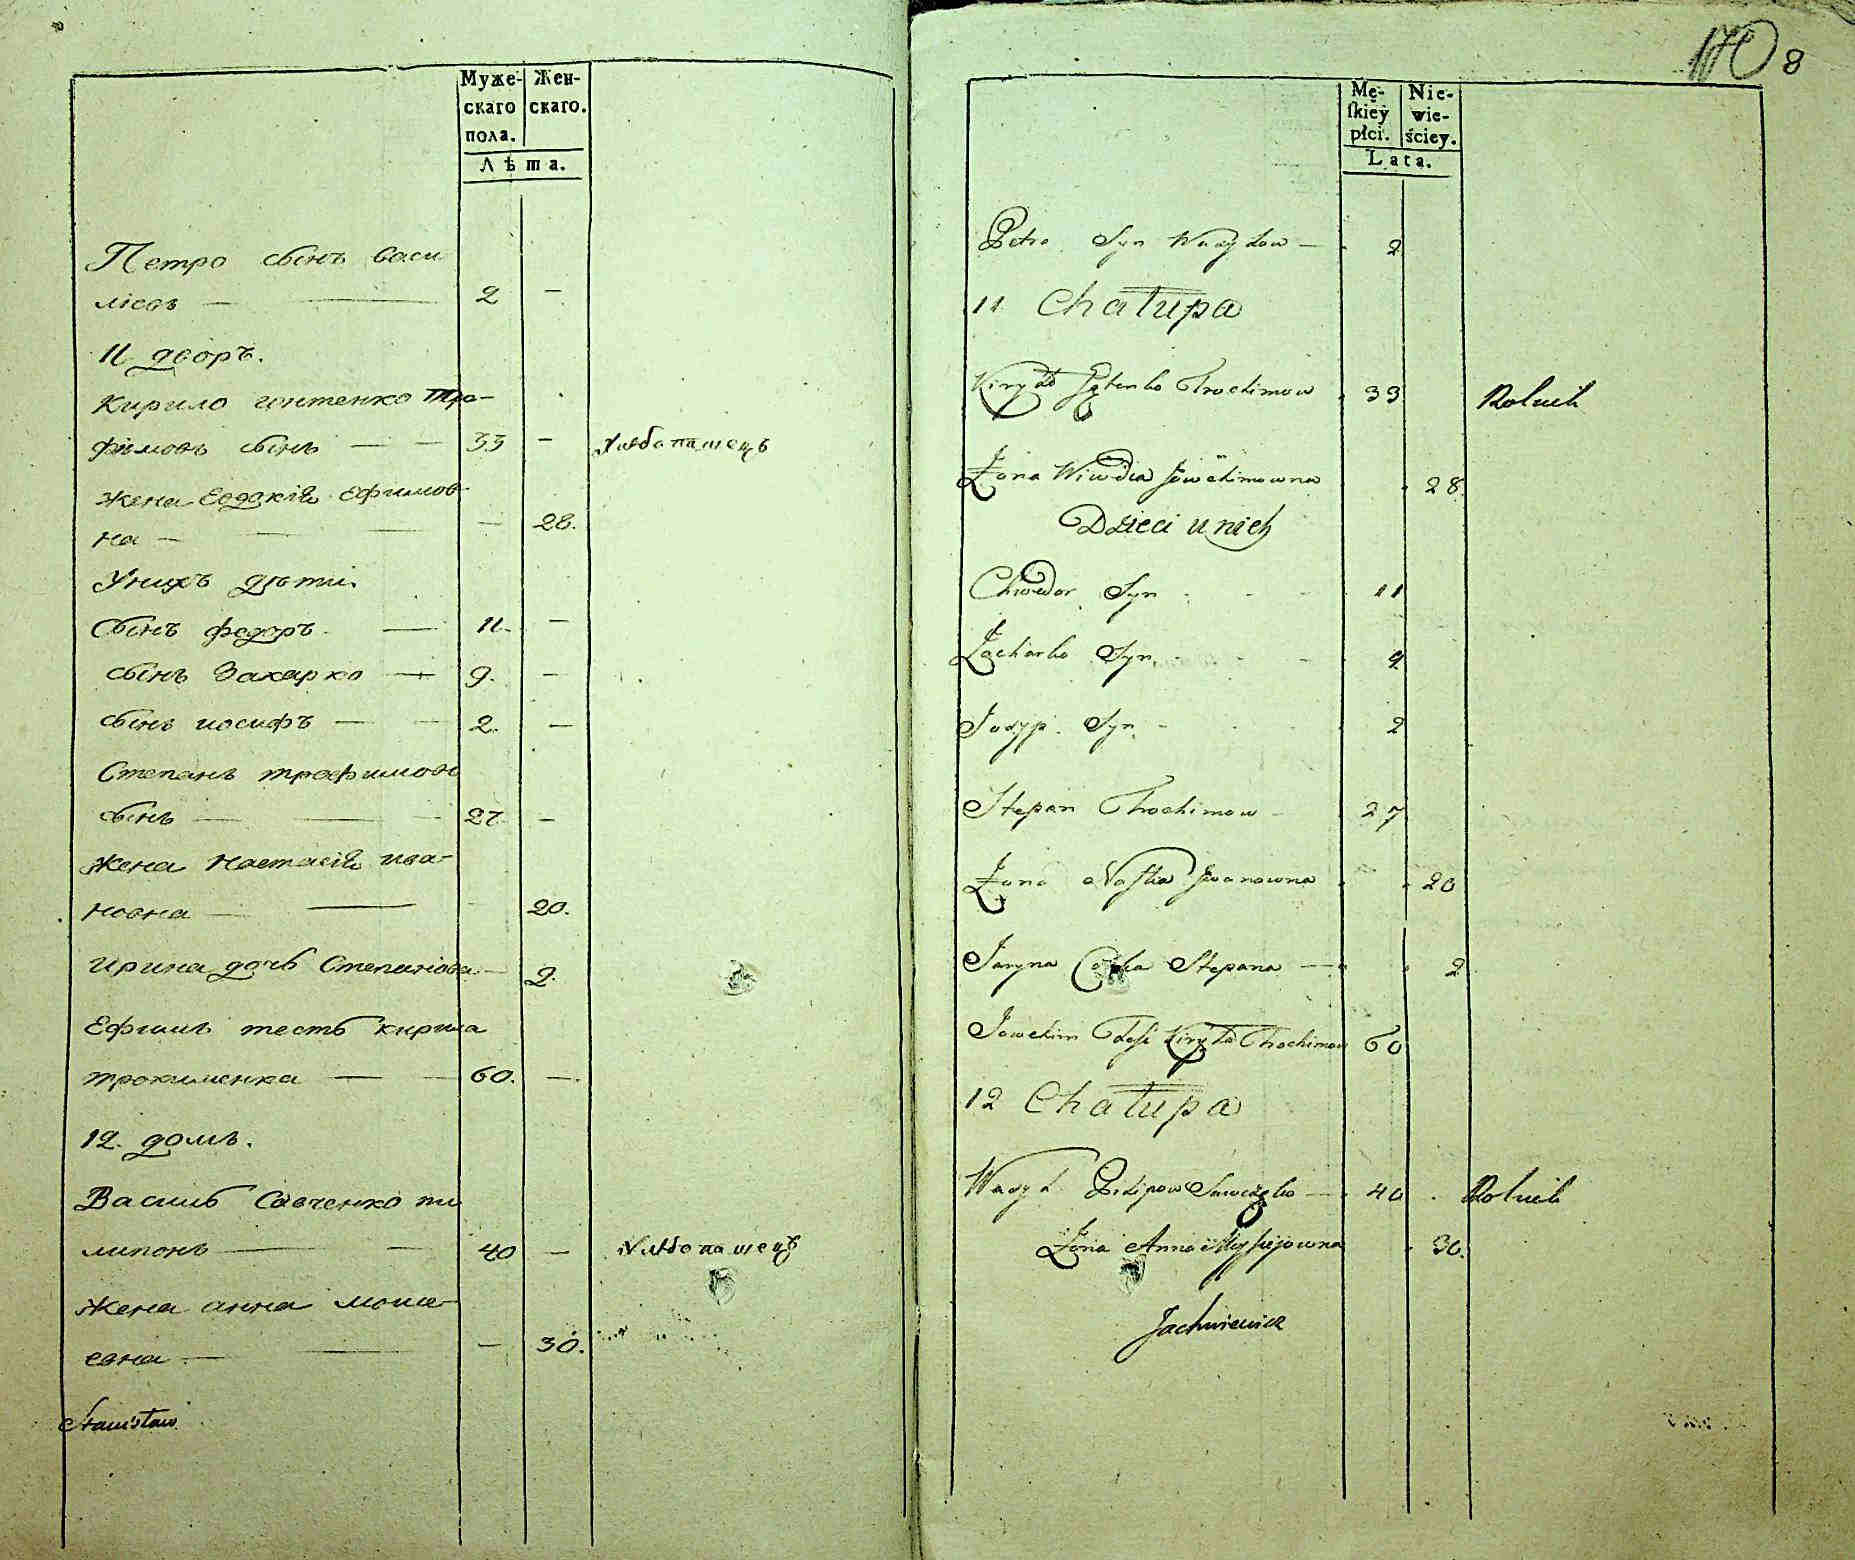 Муже-
скаго
пола.
Жен-
скаго.
Лѣта.
Петро сынъ васи
лiевъ — 2 —
11 дворъ.
Кирило гонтенко Тро-
фимовъ сынъ — 33 — хлѣбопашецъ
жена Евдокiя Ефимов
на — — 28.
У нихъ дѣти.
Сынъ федоръ — 11. —
сынъ Захарко — 9. —
сынъ иосифъ — 2. —
Степанъ трофимовъ
сынъ — 27 —
жена настасiя ива-
новна — 20.
ирина дочь Степанова — 2.
Ефимъ тесть кирила
трохименка — 60. —
12. домъ.
Василь Савченко пи
липовъ — 40 — хлѣбопашецъ
жена анна моисе-
евна — — 30.
Stanisław
170 8
Mę-
skiéy
płci.
Nie-
wie-
ściey.
Lata.
Petro Syn Wasylow — 2
11 Chałupa
Kiryło Trochimow 33 Rolnik
Żona Wiwdia Jowchimowna 28.
Dzieci u nich
Chwedor Syn 11
Zacharko Syn 9
Josyp Syn 2
Stepan Trochimow 27
Żona Nastia Iwanowna 20
Jaryna Corka Stepana — 2
Jowchim Teść Kiryła Trochimow 60
12 Chałupa
Wasyl Pilipow Sawczenko — 40 Rolnik
Żona Anna Mojsiejowna 30.
Jachniewicz